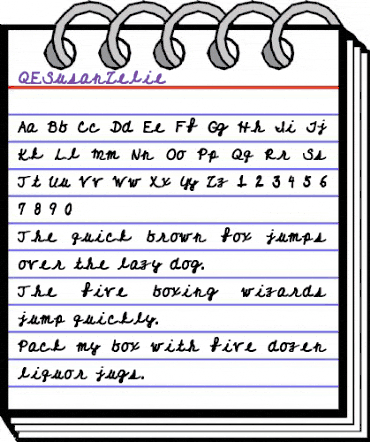 QESusanZelie
Aa Bb Cc Dd Ee Ff Gg Hh Ii Jj
Kk Ll Mm Nn Oo Pp Qq Rr Ss
Tt Uu Vv Ww Xx Yy Zz 1 2 3 4 5 6
7 8 9 0
The quick brown fox jumps
over the lazy dog.
The five boxing wizards
jump quickly.
Pack my box with five dozen
liquor jugs.